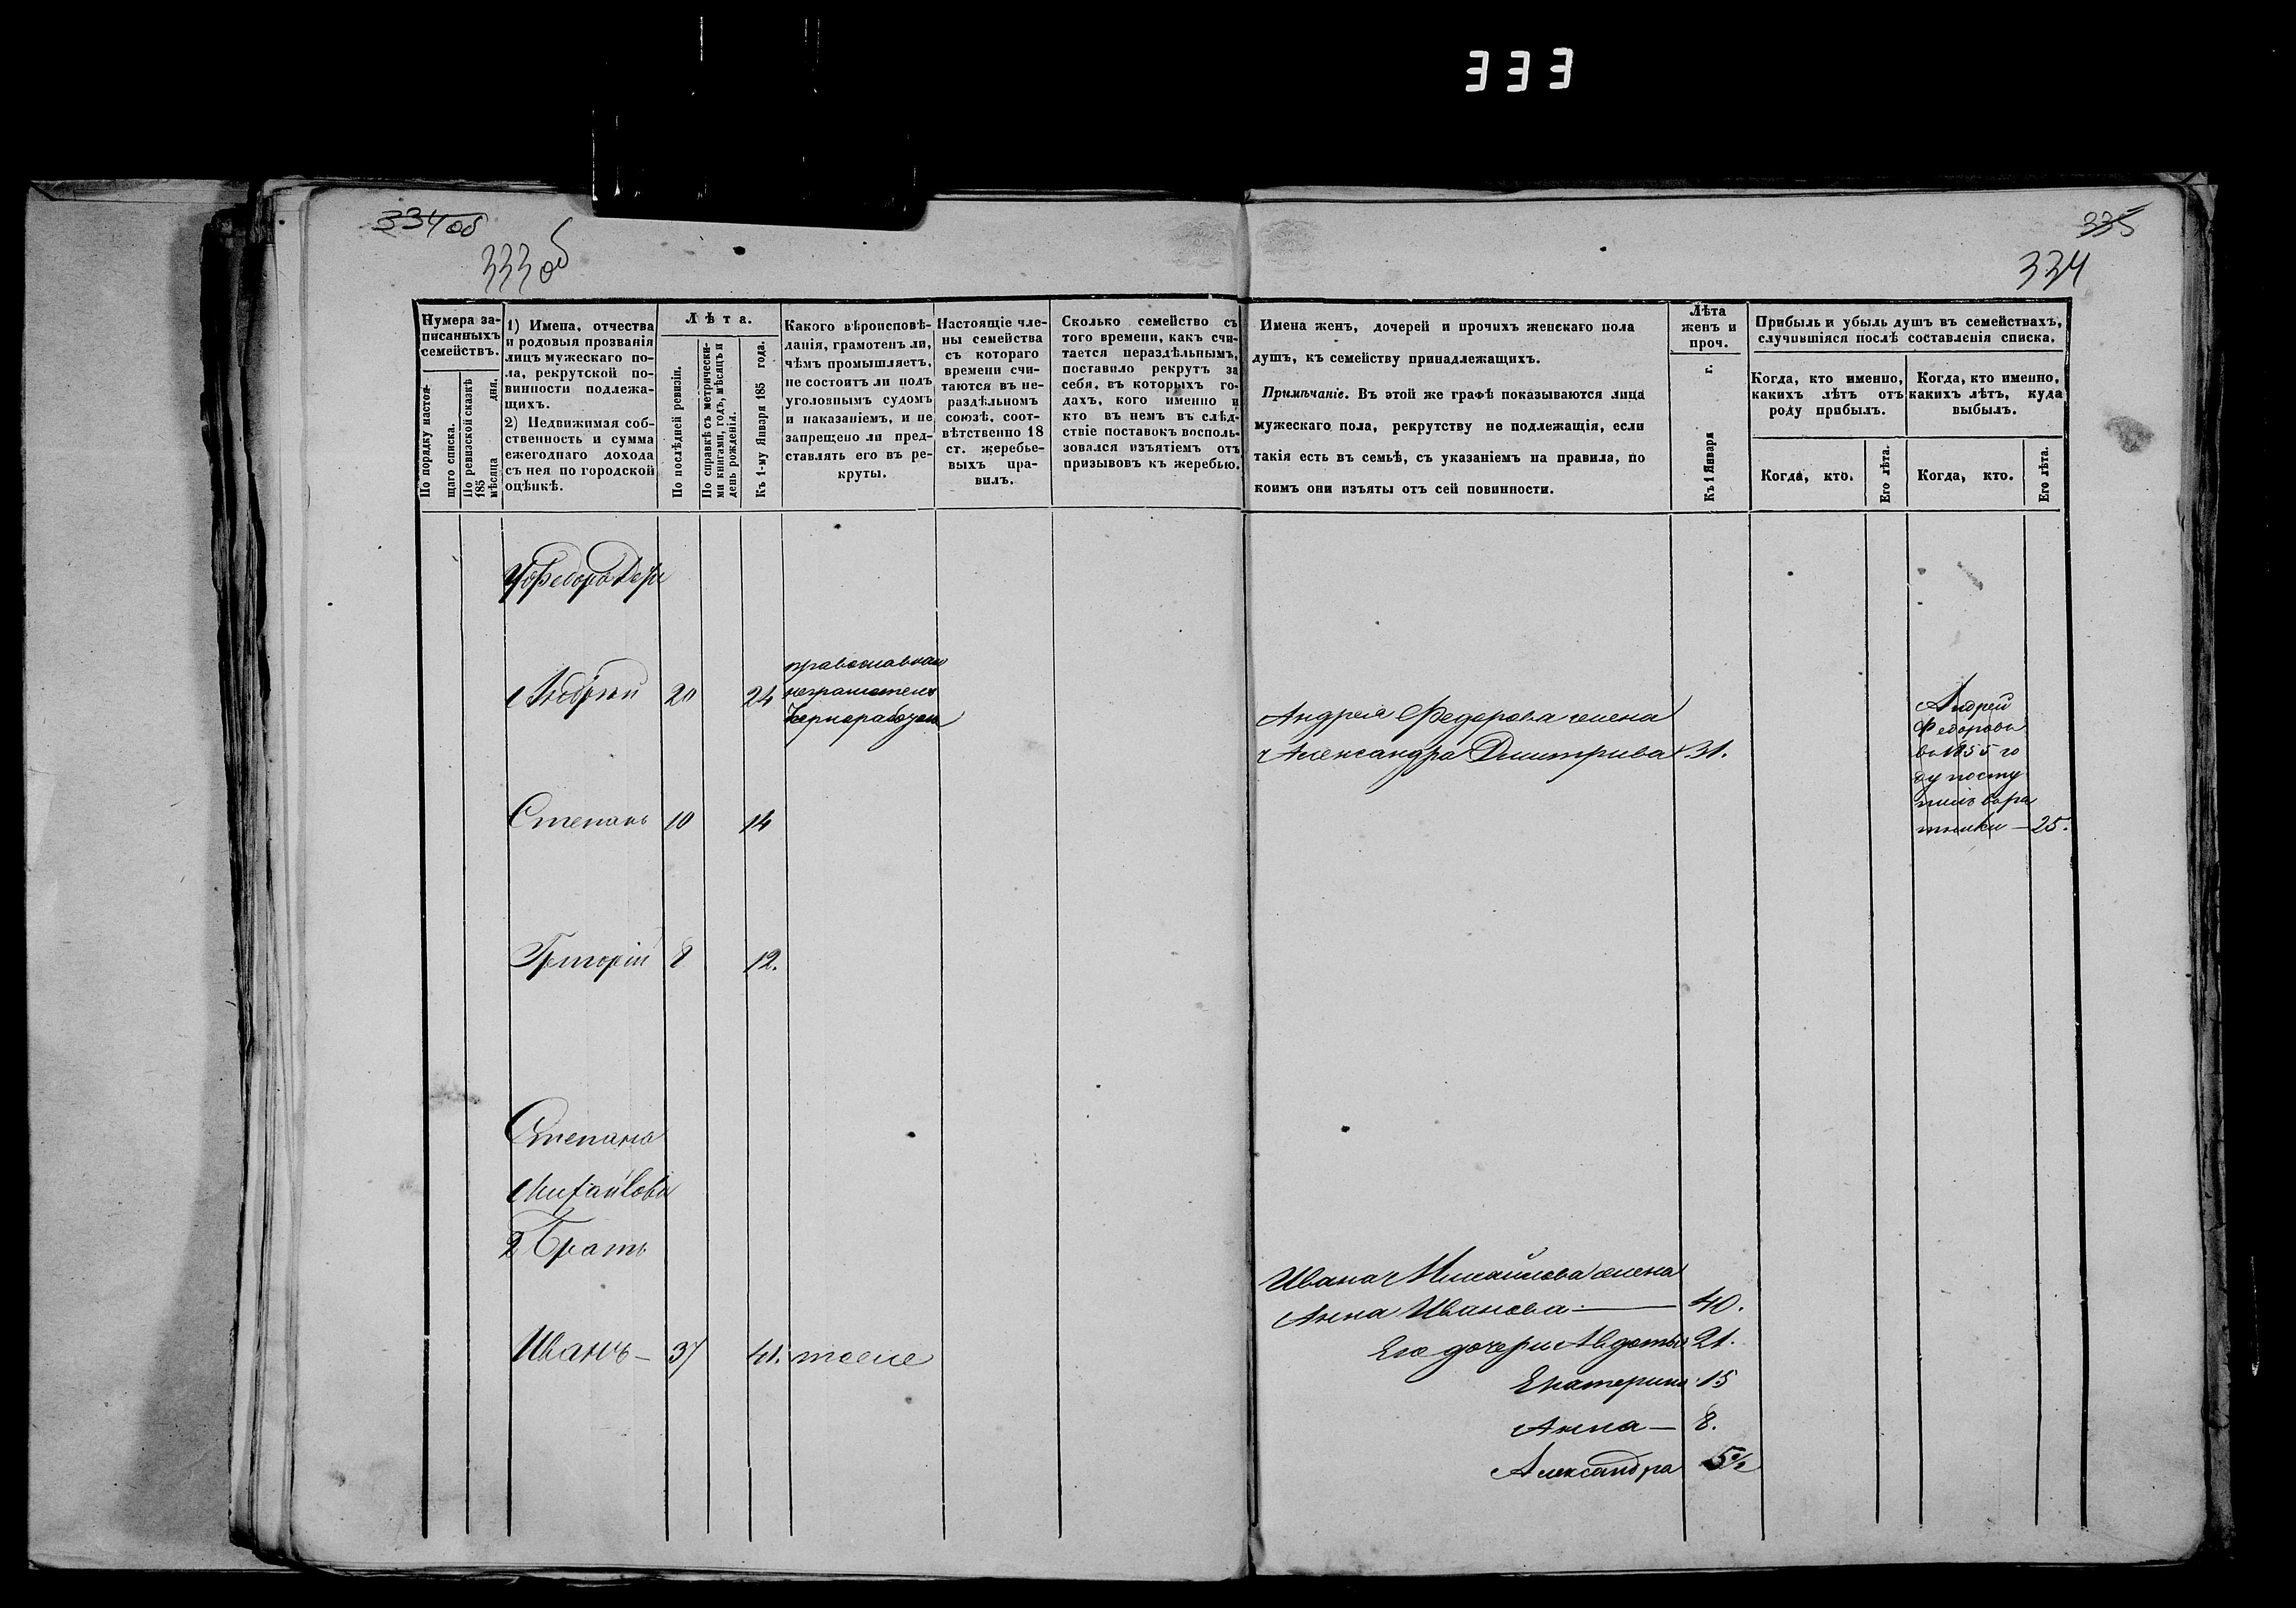 333
334об
333об
335
334
Нумера за-
писанныхъ
семействъ.
По порядку настоя-
щаго списка.
По ревизской сказкѣ
185
мѣсяца дня.
1) Имена, отчества
и родовыя прозванія
лицъ мужескаго по-
ла, рекрутской по-
винности подлежа-
щихъ.
2) Недвижимая соб-
ственность и сумма
ежегоднаго дохода
съ нея по городской
оцѣнкѣ.
Лѣта.
По послѣдней ревизіи.
По справкѣ съ метрически-
ми книгами, годъ, мѣсяцъ и
день рожденія.
Къ 1-му Января 185 года.
Какого вѣроисповѣ-
данія, грамотенъ ли,
чѣмъ промышляетъ,
не состоитъ ли подъ
уголовнымъ судомъ
и наказаніемъ, и не
запрещено ли пред-
ставлять его въ ре-
круты.
Настоящіе чле-
ны семейства
съ котораго
времени счи-
таются въ не-
раздѣльномъ
союзѣ, соот-
вѣтственно 18
ст. жеребье-
выхъ пра-
вилъ.
Сколько семейство съ
того времени, какъ счи-
тается нераздѣльнымъ,
поставило рекрутъ за
себя, въ которыхъ го-
дахъ, кого именно и
кто въ немъ въ слѣд-
ствіе поставокъ восполь-
зовался изъятіемъ отъ
призывовъ къ жеребью.
Имена женъ, дочерей и прочихъ женскаго пола
душъ, къ семейству принадлежащихъ.
Примѣчаніе. Въ этой же графѣ показываются лица
мужескаго пола, рекрутству не подлежащія, если
такія есть въ семьѣ, съ указаніемъ на правила, по
коимъ они изъяты отъ сей повинности.
Лѣта
женъ и
проч.
Къ 1 Января г.
Прибыль и убыль душъ въ семействахъ,
случившіяся послѣ составленія списка.
Когда, кто именно,
какихъ лѣтъ отъ
роду прибылъ.
Когда, кто именно,
какихъ лѣтъ, куда
выбылъ.
Когда, кто.
Его лѣта.
Когда, кто.
Его лѣта.
У Федора Дѣти
Андрей 20 24
православнаго
неграмотенъ
Чернорабочей
Андрея Федорова жена
Александра Дмитрива 31.
Андрей
Федоровъ
въ 1855 го
ду посту
пилъ в ра
тники — 25.
Степанъ 10 14
Григорій 8 12.
Степана
Михайлова
2 Братъ
Иванъ — 37 41. тоже
Ивана Михайлова жена
Анна Иванова — 40.
Его дочери Авдотья 21.
Екатерина 15
Анна — 8.
Александра 5½